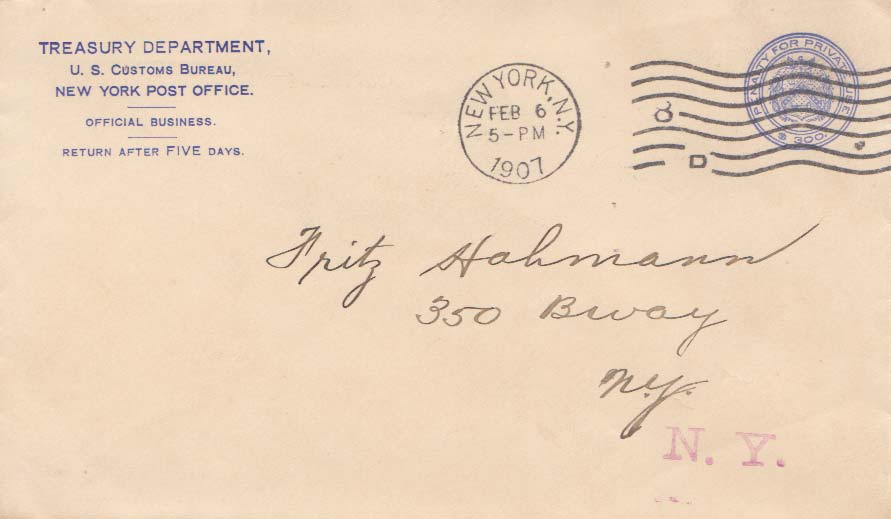 TREASURY DEPARTMENT,
U. S. CUSTOMS BUREAU,
NEW YORK POST OFFICE.
OFFICIAL BUSINESS.
RETURN AFTER FIVE DAYS.
NEW YORK, N.Y.
FEB 6
5-PM
1907
8
D
PENALTY FOR PRIVATE USE
$ 300.
Fritz Hahmann
350 Bway
N.Y.
N. Y.